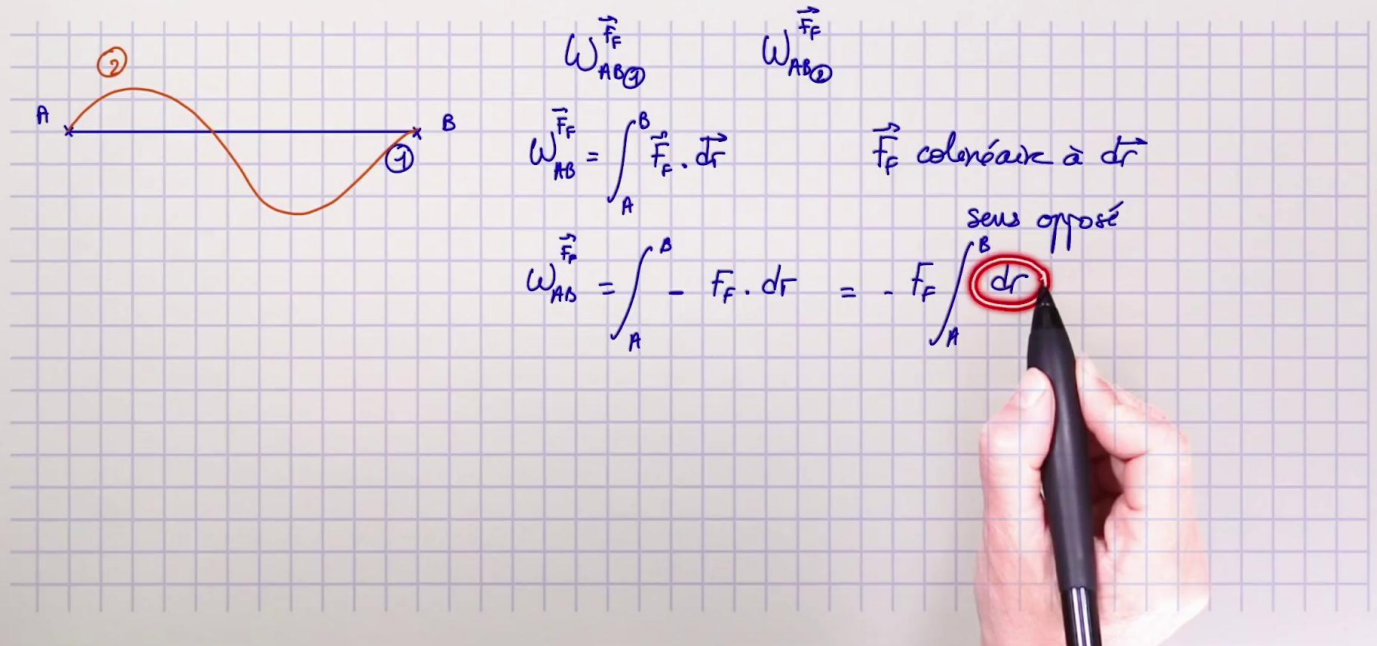 ②
A B
①
W_{AB①}^{\vec{F_F}} W_{AB②}^{\vec{F_F}}
W_{AB}^{\vec{F_F}} = \int_A^B \vec{F_F} . \vec{dr} \vec{F_F} colinéaire à \vec{dr}
sens opposé
W_{AB}^{\vec{F_F}} = \int_A^B - F_F . dr = - F_F \int_A^B dr